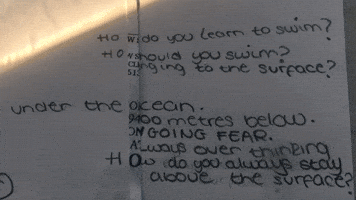 HOW do you learn to swim?
HOW should you swim?
clinging to the surface?
under the ocean.
9400 metres below.
ONGOING FEAR.
Always over thinking
HOw do you always stay
above the surface?